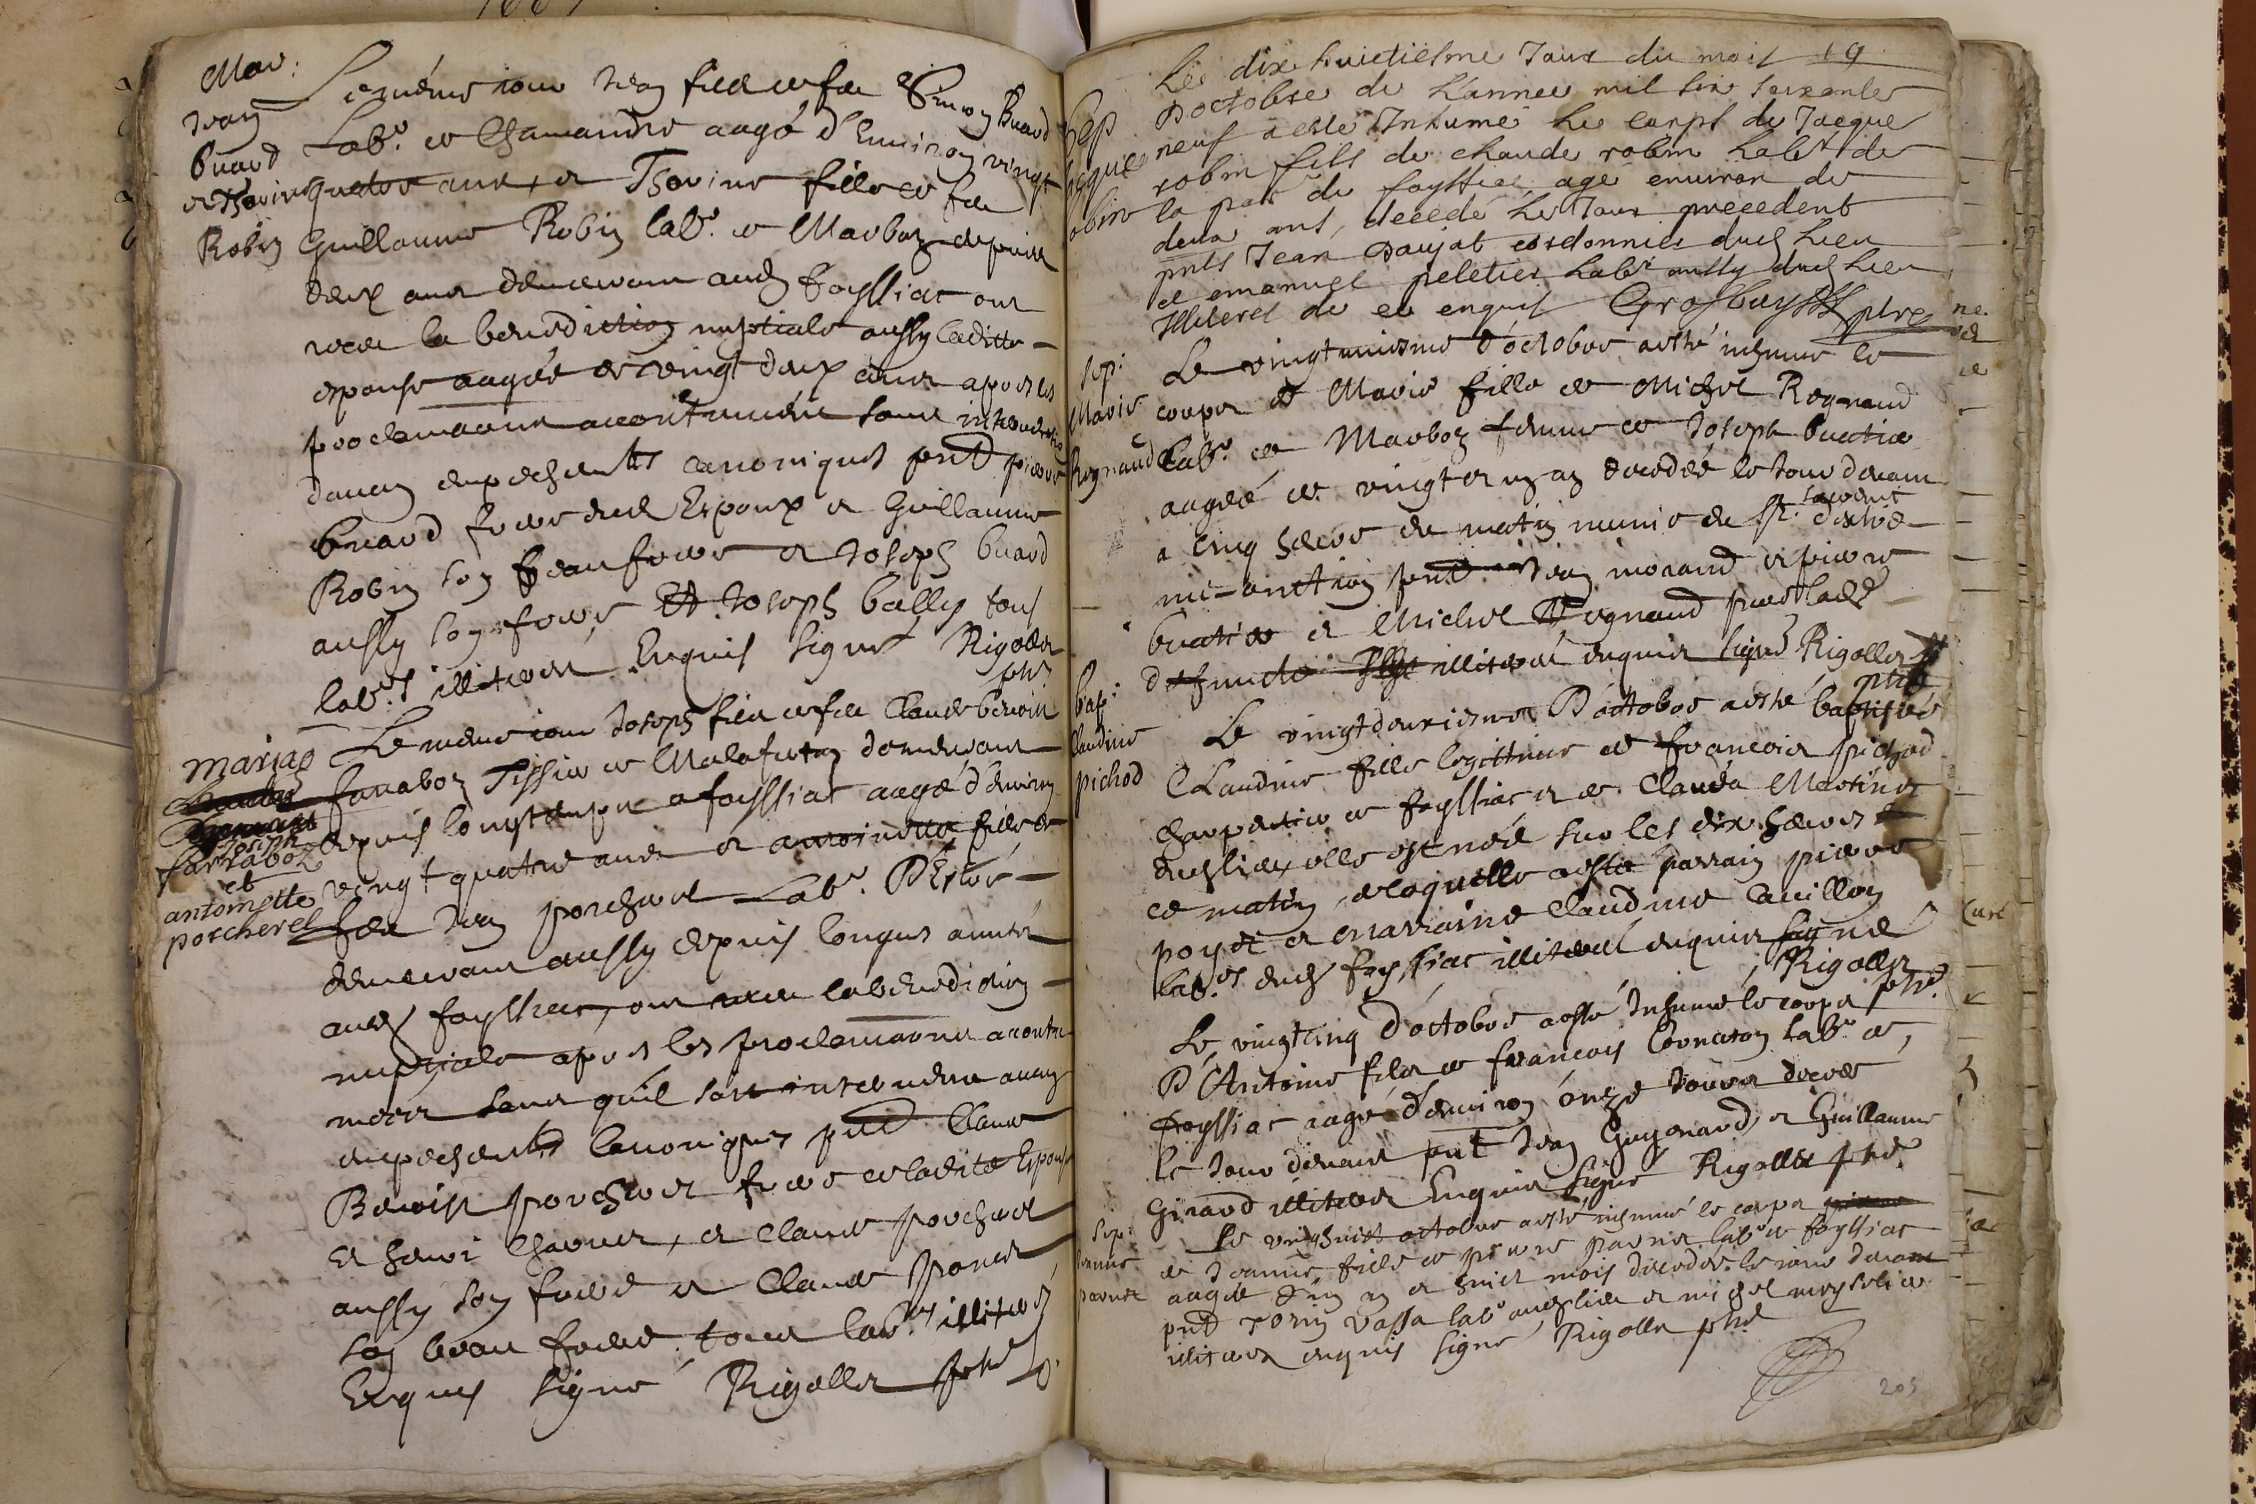 Mar:
Jean
buard
et Thevine
Robin
Le même jour Jean filz de feu Simon Buard
Labr. de Chamandre aagé d'environ vingt
quatre ans, et Thevine fille de feu
Guillaume Robin labr. de Marboz depuis
deux ans demeurant aud Foyssiat ont
receu la benediction nuptiale aussy laditte
espouse aagée de vingt deux ans apres les
proclamaons accoutumées sans
daucun empeschements canoniques pnt pierre
Buard frere dud Espoux et Guillaume
Robin son beaufrere et Joseph buard
aussy son frere Et Joseph bally tous
labrs illiteres Enquis Signé Rigollet
ptre
mariag
joseph
farraboz
et
antoinette
porcherel
Le meme jour Joseph filz de feu Claude benoist
farraboz Tissier de Malafretaz demeurant
depuis longtemps a foyssiat aagé d'environ
vingt quatre ans et antoinette fille de
feu Jean porcherel Labr. D'Estré
demeurant aussy depuis longues années
aud foyssiat, ont receu la benediction
nuptiale apres les proclamaons acoutu
mées sans qu'il soit intervenu aucun
empeschements Canoniques pnt Claude
Benoist porcherel frere de ladite Espouse
et henri Charnet, et Claude porcherel
aussy son frere et Claude ponet
son beau frere tous labrs illiteres
Enquis Signé Rigollet ptre
19
Sep
jaques
robin
Le dix huictiesme Jour du mois
D'octobre de L'annee mil six seixante
neuf a esté Inhumé Le corps de Jacque
robin fils de claude robin Labr de
la par de foyssiat agé environ de
deux ans, decedé Le Jour precedent
pnts Jean Daujat cordonnier dud Lieu
et emanuel peletier Labr aussy dud Lieu
Illiteres de ce enquis Grosbuyss ptre
Sep:
Marie
Regnaud
Le vingtuniesme d'octobre a esté inhumé le
corps de Marie fille de Michel Regnaud
Labr. de Marboz femme de Joseph buatier
aagée de vingt et un an decedée le Jour devant
a cinq heures du matin munie du St. sacrement
d'extre
me-onction pnt Jean morand et pierre
buatier et Michel Regnaud pere de lad
deffuncte illiteres enquis signé Rigollet
ptre
bap:
claudine
pichod
Le vingtdeuxiesme D'octobre a esté baptisée
Claudine fille legittime de francois pichod
charpentier de foyssiat et de Clauda Mestinet
dud lieu, elle est née sur les dix heures
ce matin, de laquelle a esté parrain pierre
poyet et marraine Claudine Cavillon
labrs dud foyssiat illiteres enquis signé
Rigollet
ptre
Le vingtcinq d'octobre a esté Inhumé le corps
D'Antoine filz de francois Cornaton labr de
foyssiat aagé d'environ onze Jours decedé
le Jour devant pnt Jean Guyonard, et Guillaume
Girard illiteres Enquis Signé Rigollet ptre
Sep:
Jeanne
parnet
Le vingthuict octobre a esté inhumé le corps
de Jeanne fille de pierre parnet labr de foyssiat
aagée d'un an et huict mois decedée le jour devant
pnt Tonin Vassa labr aud lieu et michel
illiteres enquis signé Rigollet ptre
203